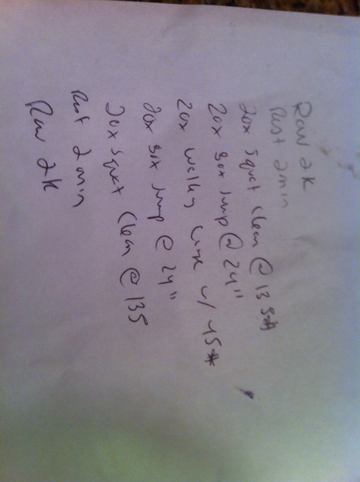 Row 2K
Rest 2min
20x squat clean @ 135#
20x Box jump @ 24"
20x walking lunge w/ 45#
20x Box jump @ 24"
20x squat clean @ 135
Rest 2min
Row 2K